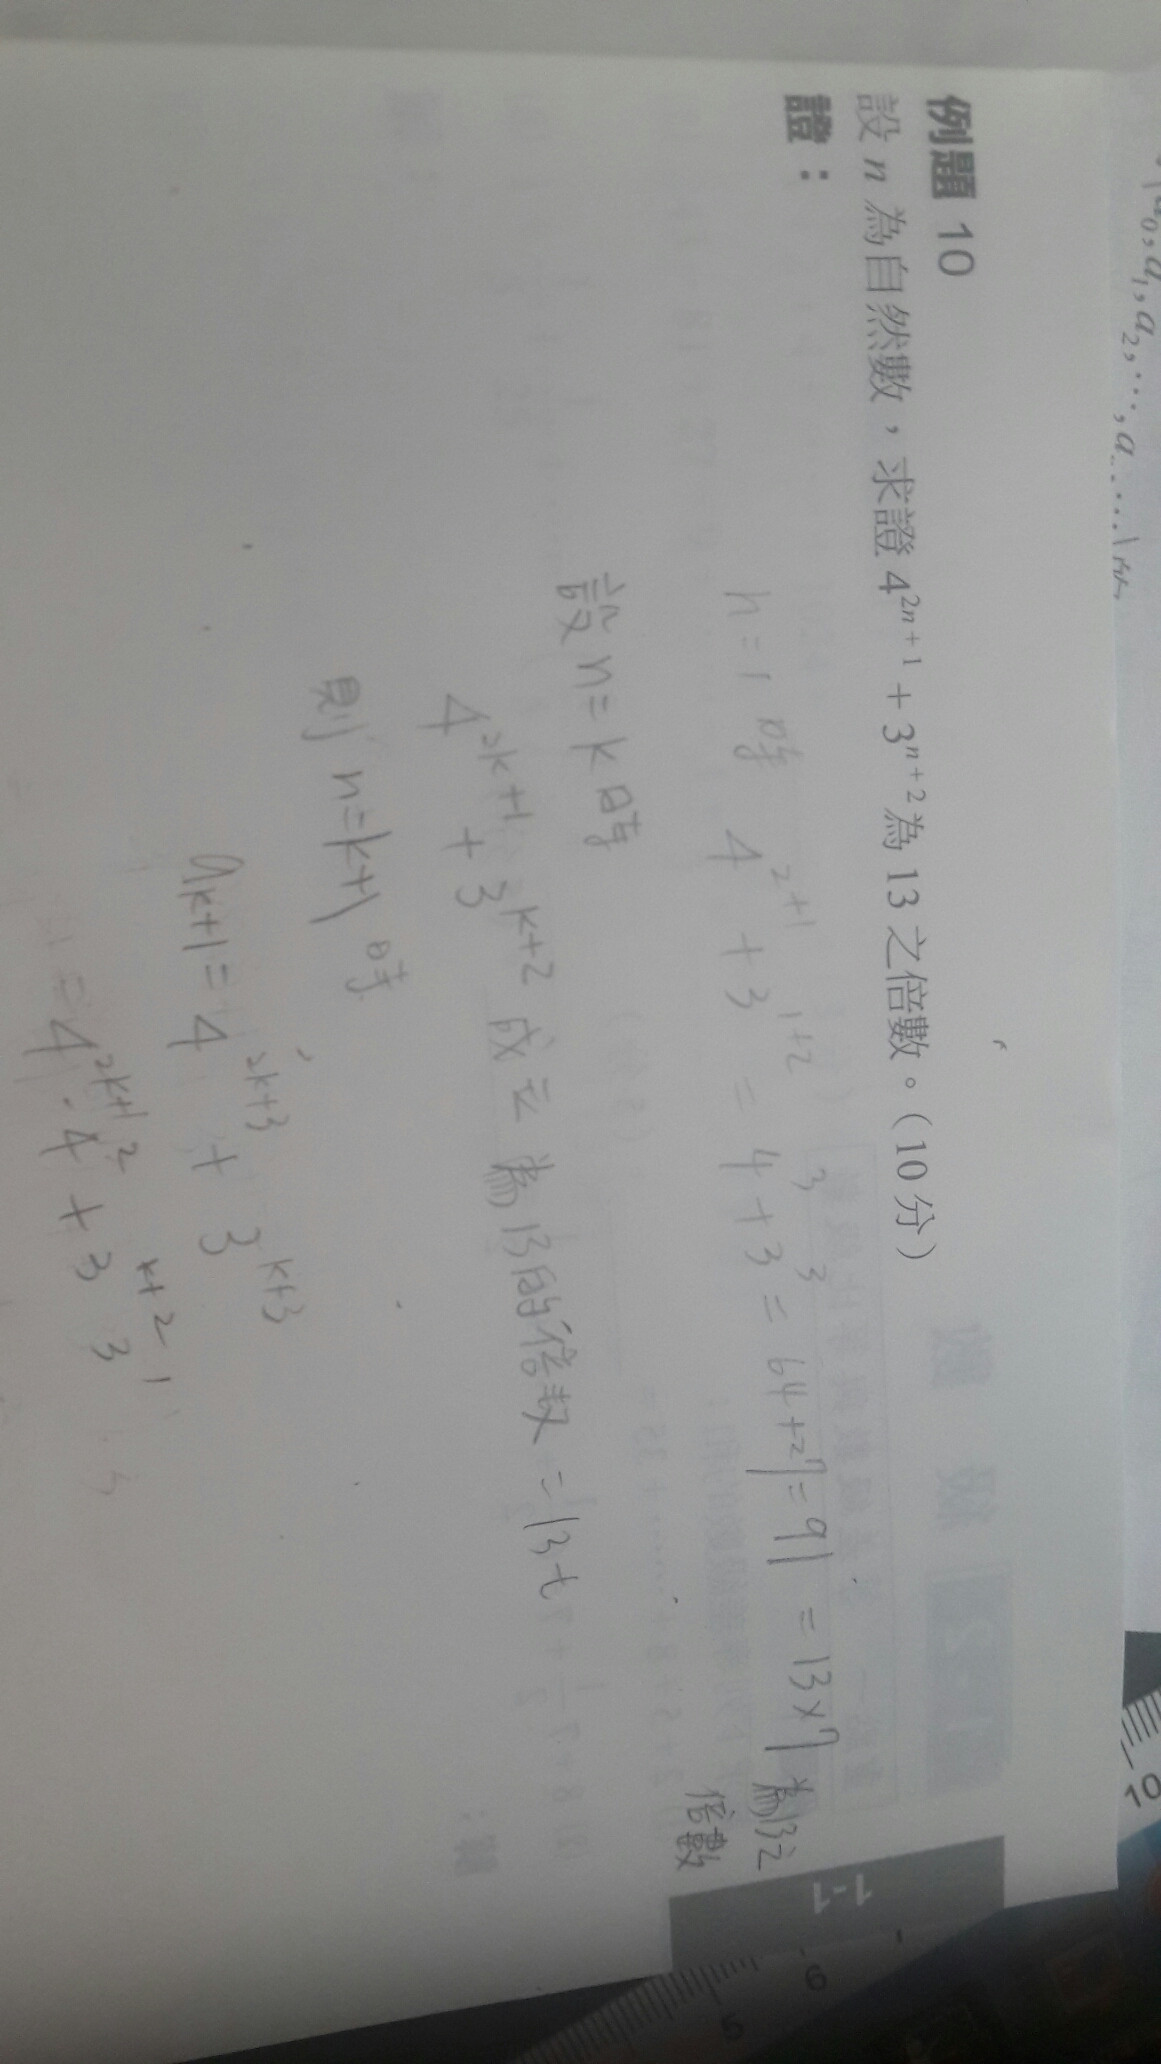 a₀, a₁, a₂, …, a
例題 10
設 n 為自然數，求證 4²ⁿ⁺¹ + 3ⁿ⁺² 為 13 之倍數。（10 分）
證：
n=1 時 4²⁺¹ + 3¹⁺² = 4³+3³ = 64+27 = 91 = 13×7 為13之
倍數
設 n=k 時
4²ᵏ⁺¹ + 3ᵏ⁺² 成立 為13的倍数 = 13t
則 n=k+1 時
aₖ₊₁ = 4²ᵏ⁺³ + 3ᵏ⁺³
= 4²ᵏ⁺¹·4² + 3ᵏ⁺² 3¹
1-1
10
6
5